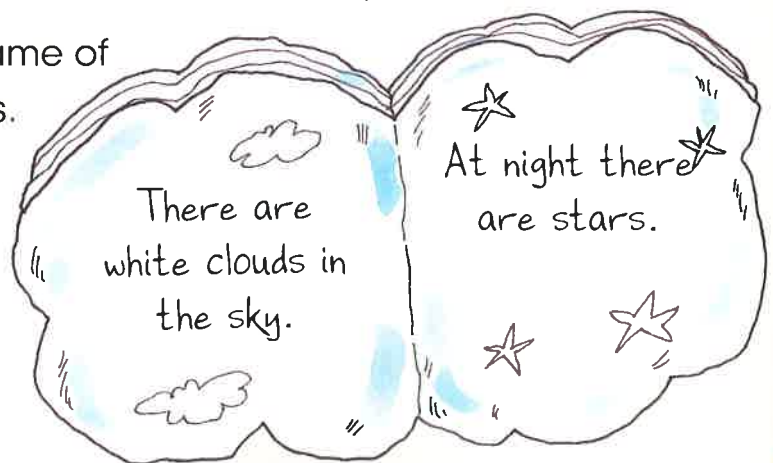 ame of
s.
There are
white clouds in
the sky.
At night there
are stars.